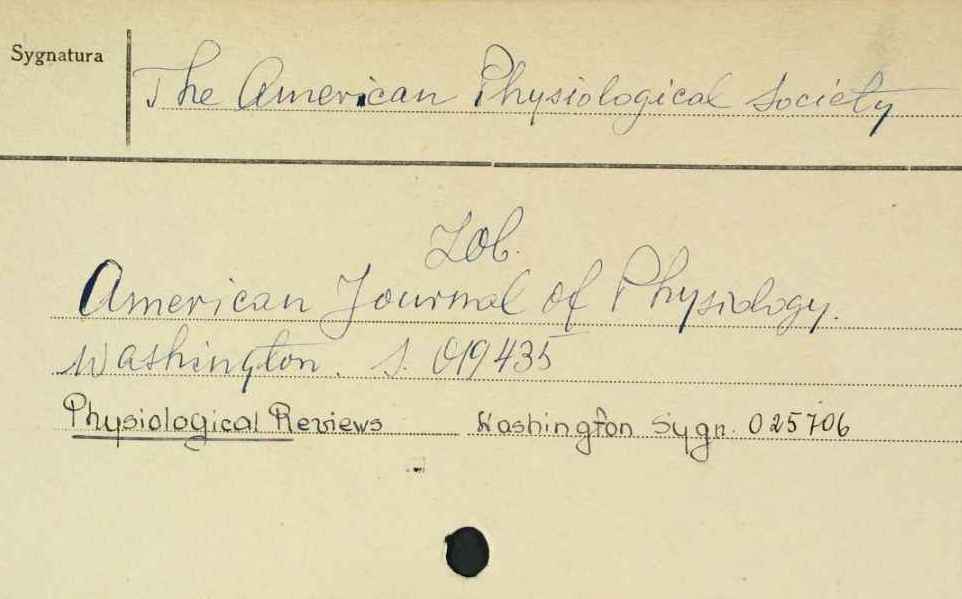 Sygnatura
The American Physiological Society
Zob.
American Journal of Physiology.
Washington. S. 019435
Physiological Reviews Washington Sygn. 025706